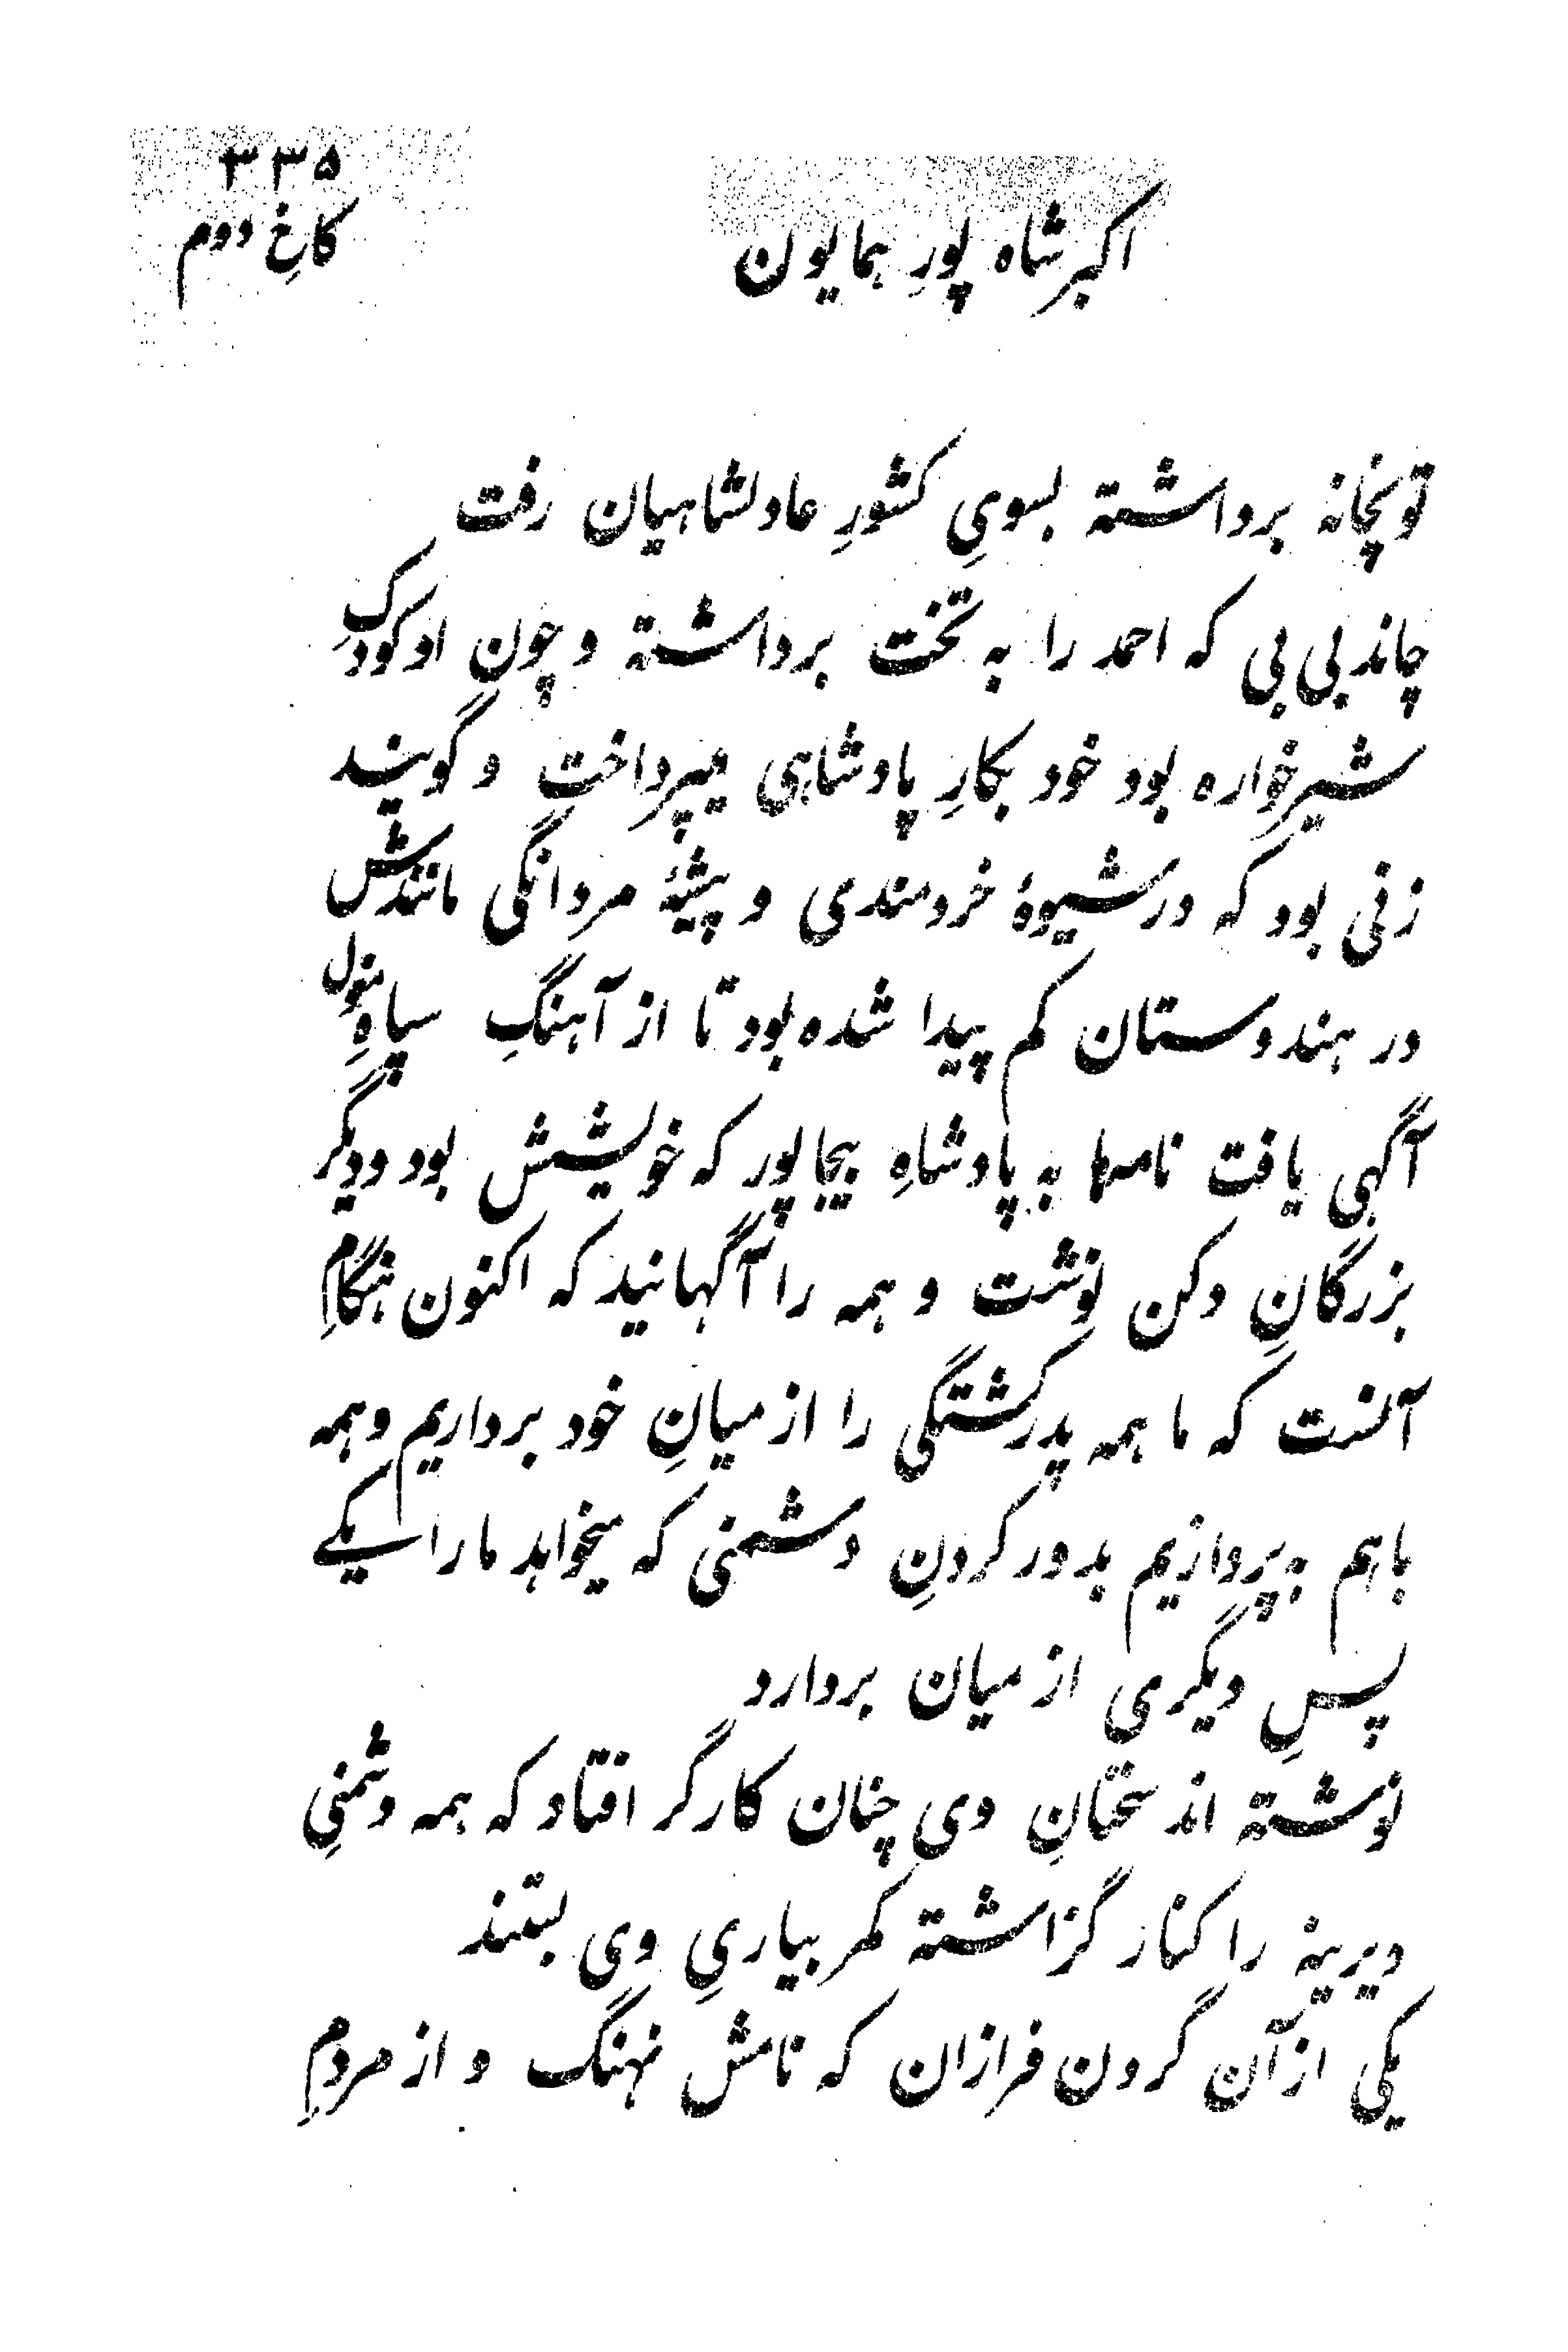 ۳۳۵
کاخِ دوم
اکبرشاه پورِ همایون
توپخانه برداشته بسویِ کشورِ عادلشاهیان رفت
چاندبی بی که احمد را به تخت برداشته و چون او کودکِ
شیرخواره بود خود بکارِ پادشاهی میپرداخت و گویند
زنی بود که در شیوهٔ خردمندی و پیشهٔ مردانگی مانندش
در هندوستان کم پیدا شده بود تا از آهنگِ سپاهِ مغول
آگهی یافت نامها به پادشاهِ بیجاپور که خویشش بود و دیگر
بزرگانِ دکن نوشت و همه را آگهانید که اکنون هنگامِ
آنست که ما همه پدرکشتگی را از میانِ خود برداریم و همه
باهم به پردازیم بدور کردنِ دشمنی که میخواهد ما را یکے
پسِ دیگری از میان بردارد
نوشته اند سخنانِ وی چنان کارگر افتاد که همه دشمنیِ
دیرینه را کنار گزاشته کمر بیاریِ وی بستند
یکی از آن گردن فرازان که نامش نهنگ و از مردمِ